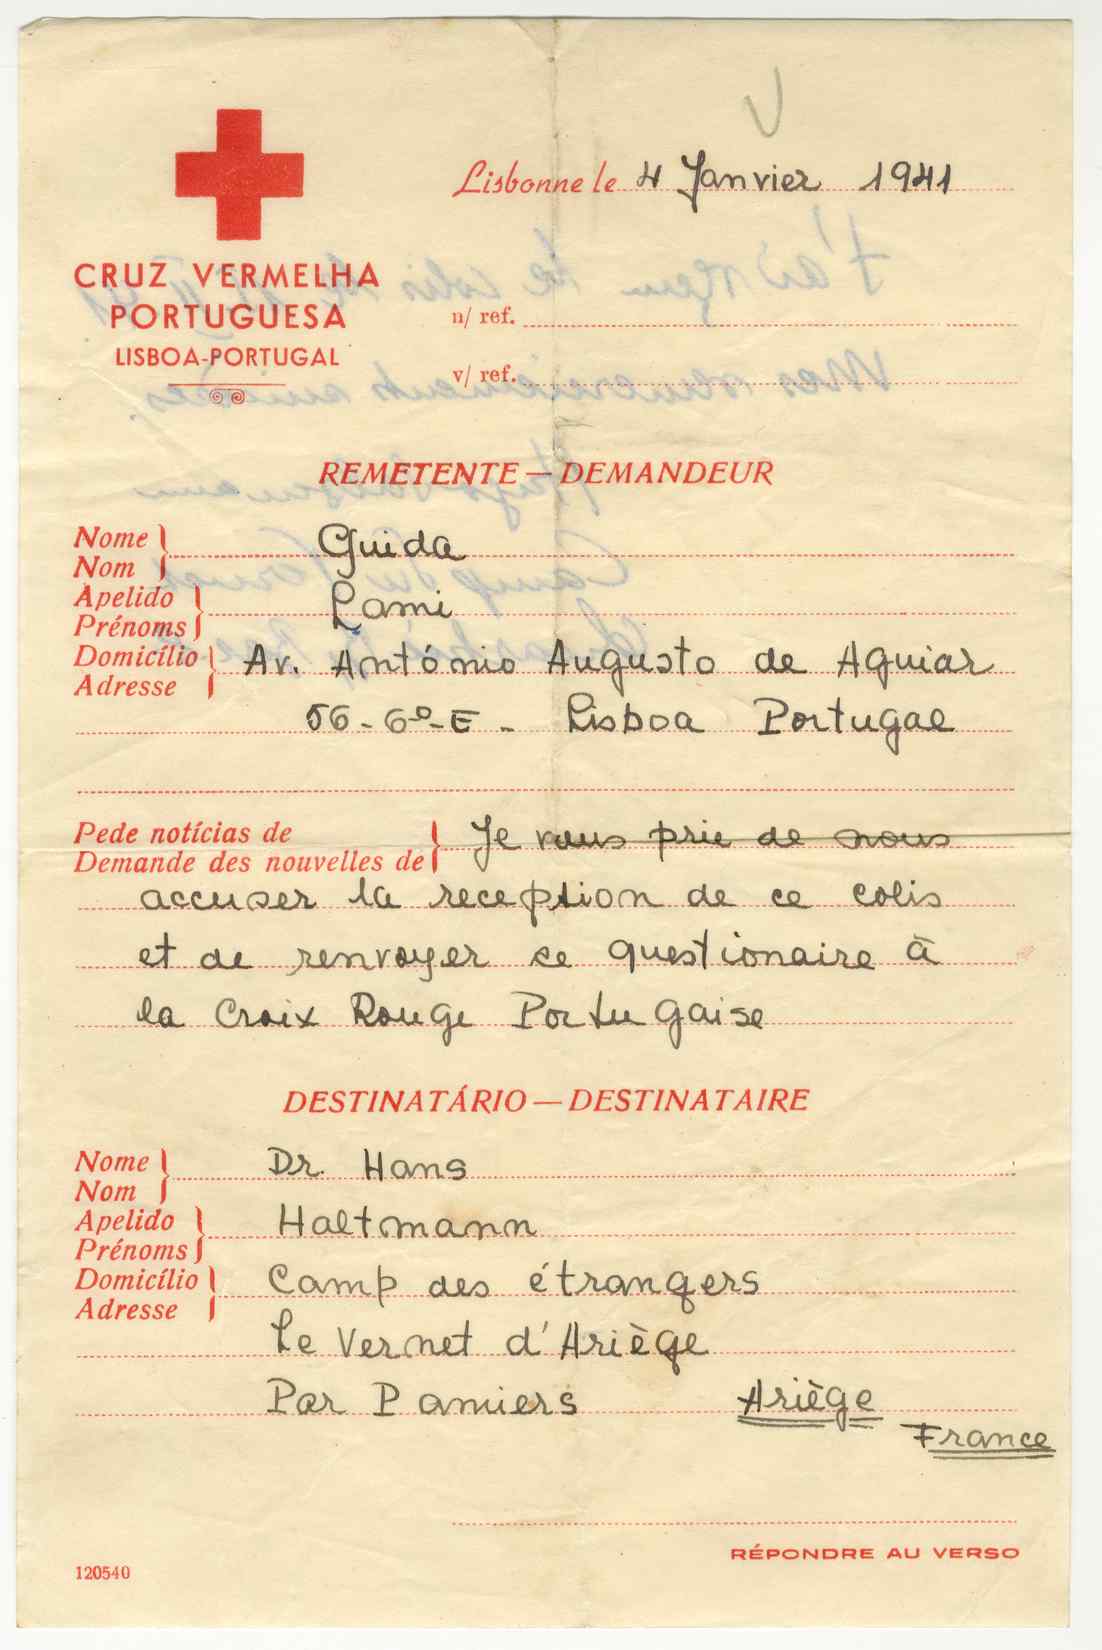 Lisbonne le 4 Janvier 1941
CRUZ VERMELHA
PORTUGUESA
LISBOA-PORTUGAL
n/ ref.
v/ ref.
REMETENTE — DEMANDEUR
Nome
Nom
Guida
Apelido
Prénoms
Lami
Domicílio
Adresse
Av. António Augusto de Aguiar
56-6º-E - Lisboa Portugal
Pede notícias de
Demande des nouvelles de
Je vous prie de nous
accuser la reception de ce colis
et de renvoyer ce questionaire à
la Croix Rouge Portugaise
DESTINATÁRIO — DESTINATAIRE
Nome
Nom
Dr. Hans
Apelido
Prénoms
Haltmann
Domicílio
Adresse
Camp des étrangers
Le Vernet d'Ariège
Par Pamiers Ariège
France
RÉPONDRE AU VERSO
120540